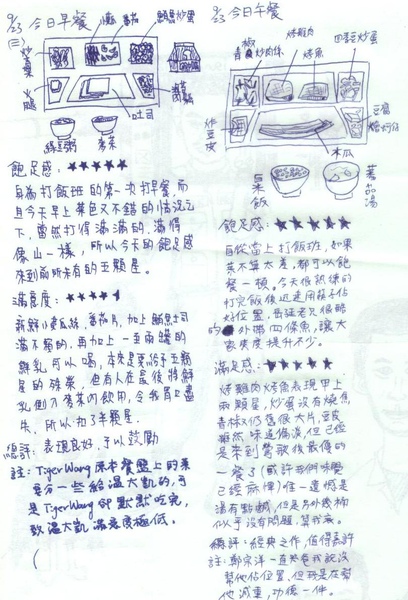 9/23 今日早餐
(三)
小瓜
番茄
鮪魚炒蛋
火腿
吐司
飽足感：★★★★★
身為打飯班的第一次打早餐，而
且今天早上菜色又不錯的情況之
下，當然打得滿滿的，滿得
像山一樣，所以今天的飽足感
來到前所未有的五顆星。
滿意度：★★★★
新鮮小黃瓜絲，番茄片，加上鮪魚土司
滿不賴的，再加上一至兩罐的
鮮乳可以喝，本來是要給予五顆
星的殊榮，但有人在最後將鮮
乳倒入麥茶內飲用，令我胃口盡
失，所以扣了半顆星。
總評：表現良好，予以鼓勵
註：Tiger Wang 原本餐盤上的菜
要分一些給溫大凱的，可
是 Tiger Wang 卻默默吃完，
致溫大凱滿意度極低。
9/23 今日午餐
青椒炒肉絲
烤雞肉
烤魚
四季豆炒蛋
炸豆皮
豆腐
木瓜
飯
湯
飽足感：★★★★★
自從當上打飯班，如果
菜不算太差，都可以飽
餐一頓。今天很熟練的
打完飯後迅速用筷子佔
好位置，
的外帶四條魚，讓大
家爽度提升不少。
滿足感：★★★★★
烤雞肉烤魚表現甲上
兩顆星，炒蛋沒有燒焦，
青椒又仍舊很大片，豆皮
雖然味道偏淡，但已經
是來到營歌後最優的
一餐了（或許我們味覺
已經麻痺）唯一遺憾是
湯有點鹹，但是另外幾桶
似乎沒有問題，算我衰。
總評：經典之作，值得嘉許
註：鄭宗洋一直
幫他佔位置，但我是在幫
他減重，功德一件。